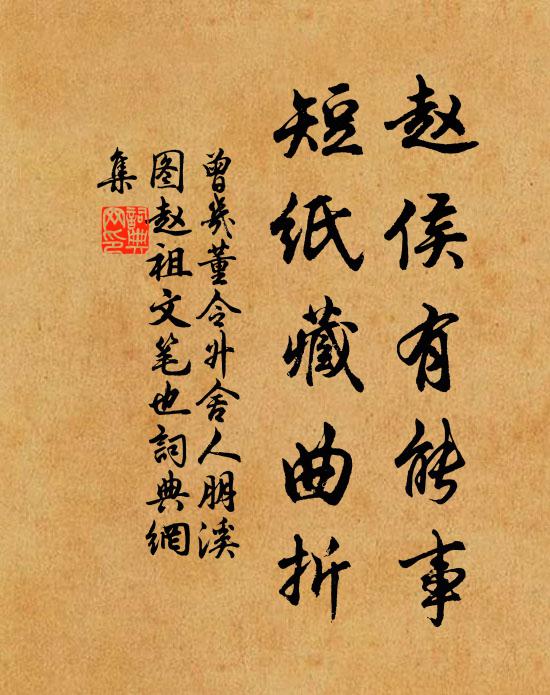 赵侯有能事
短纸藏曲折
曾几董令升舍人朋溪
图赵祖文笔也詞典網
集
詞典
网印